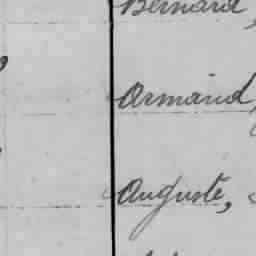 Bernard,
Armand,
Auguste,